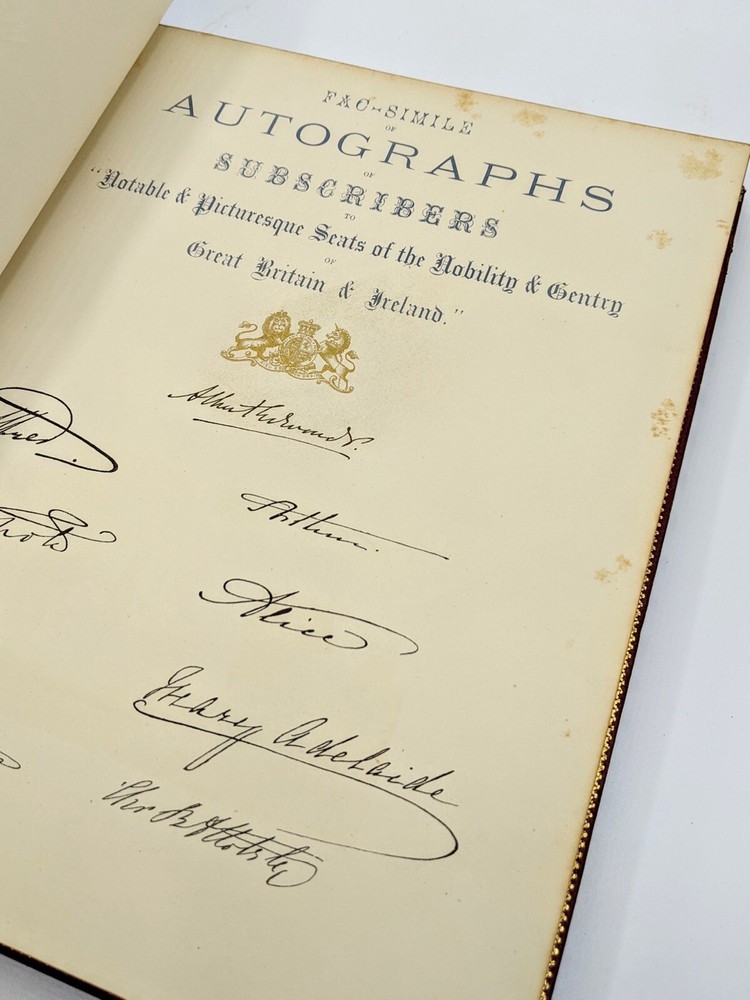 FAC-SIMILE
OF
AUTOGRAPHS
OF
SUBSCRIBERS
TO
"Notable & Picturesque Seats of the Nobility & Gentry
OF
Great Britain & Ireland."
Albert Edward
Arthur.
Alice
Mary Adelaide